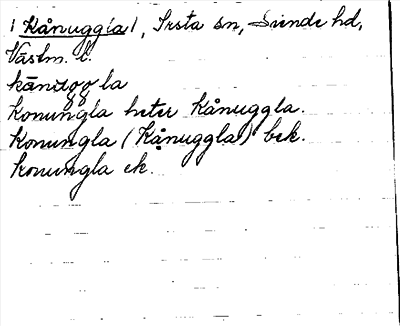 | Kånuggla |, Irsta sn, Siende hd,
Västm. l.
Konungla heter Kånuggla.
Konungla (Kånuggla) bek.
Konungla ek.